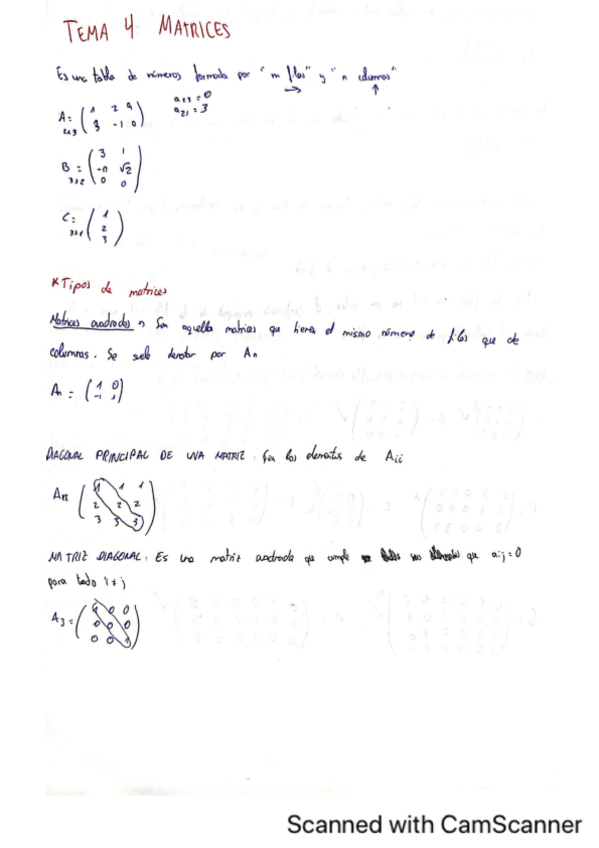 TEMA 4: MATRICES
Es una tabla de números formada por "m filas" y "n columnas"
→ ↑
A = ( 1 2 4 a₁₃ = 0
2x3 3 -1 0 ) a₂₁ = 3
B = ( 3 1
-π √2
3x2 0 0 )
C = ( 1
2
3x1 3 )
*Tipos de matrices
Matrices cuadradas → Son aquellas matrices que tienen el mismo número de filas que de
columnas. Se suele denotar por An
An = ( 1 0
-1 1 )
DIAGONAL PRINCIPAL DE UNA MATRIZ: Son los elementos de Aii
( 1 1 1
2 2 2
3 3 3 )
MATRIZ DIAGONAL: Es una matriz cuadrada que cumple que aij = 0
para todo i ≠ j
A3 = ( 1 0 0
0 0 0
0 0 1 )
Scanned with CamScanner